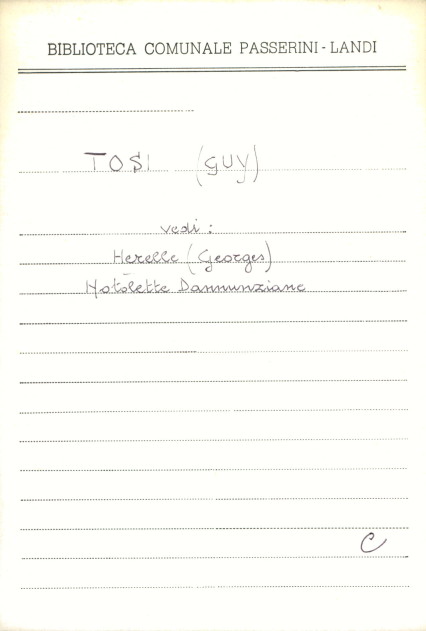 BIBLIOTECA COMUNALE PASSERINI-LANDI
TOSI (GUY)
vedi:
Herelle (Georges)
Notolette Dannunziane
C